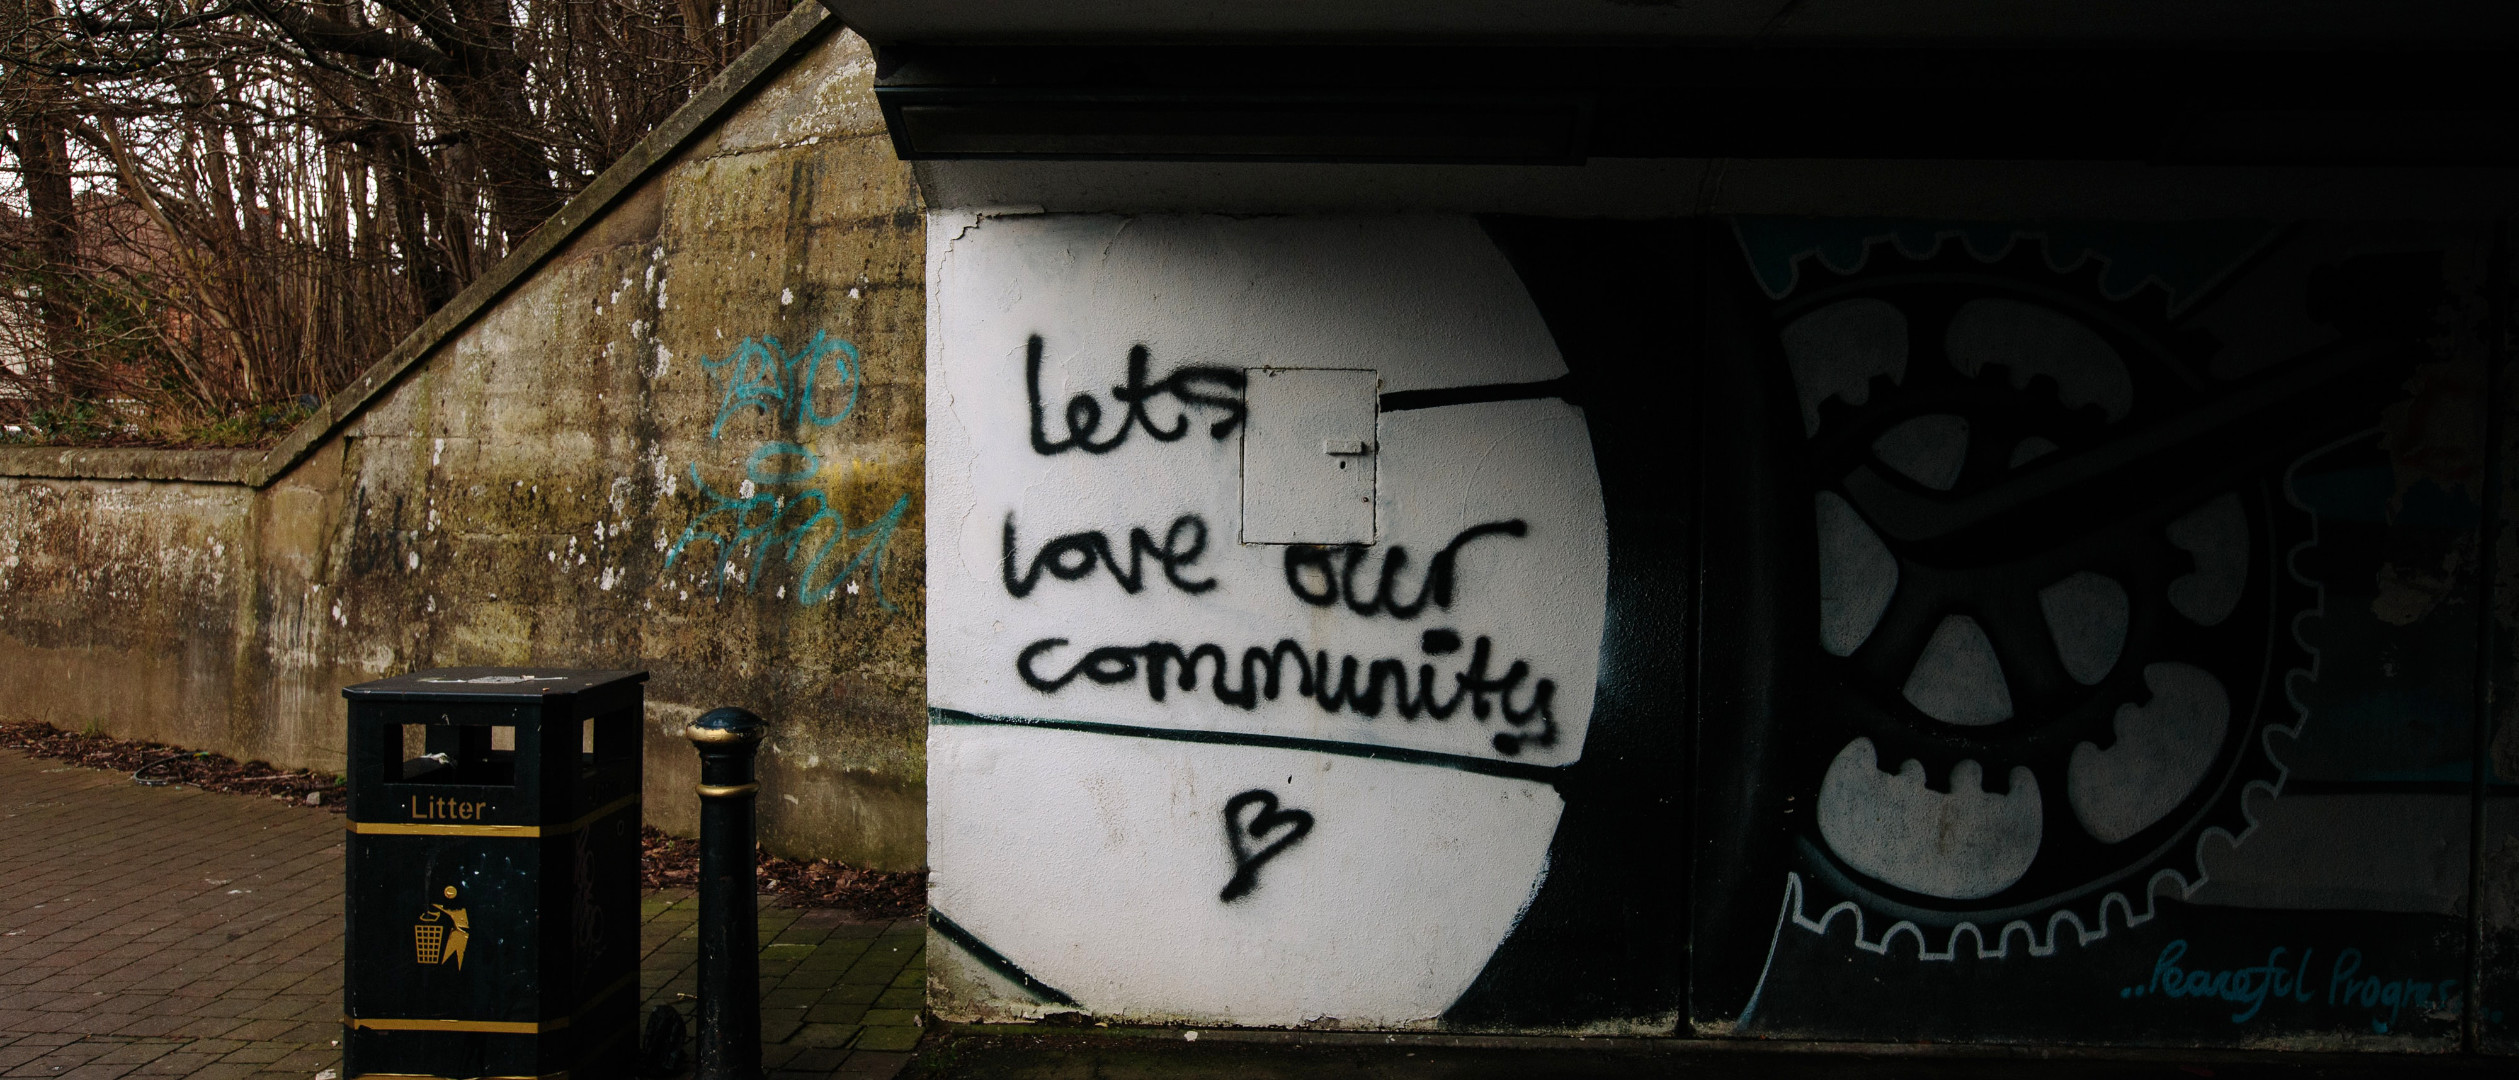 Lets
love our
community
Litter
..Peaceful Progress..